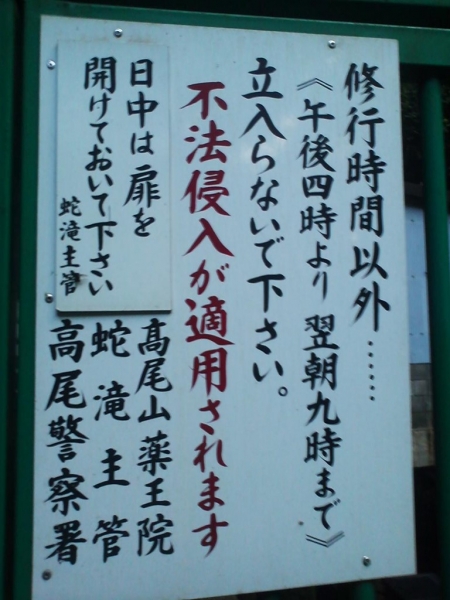 修行時間以外……
《午後四時より翌朝九時まで》
立入らないで下さい。
不法侵入が適用されます
日中は扉を
開けておいて下さい
蛇滝主管
髙尾山薬王院
蛇滝主管
高尾警察署